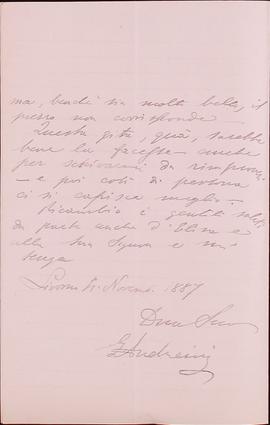 ma, benchè sia molto bella, il
prezzo non corrisponde.
Questa gita, quà, sarebbe
bene la facesse anche
per schivarci da rimproveri
— e poi così di persona
ci si capisce meglio.
Ricambio i gentili saluti
da parte anche d'Elisa e
alla Sua Signora e mi
tenga
Livorno 4. Novem. 1887
Suo
E. Andreini